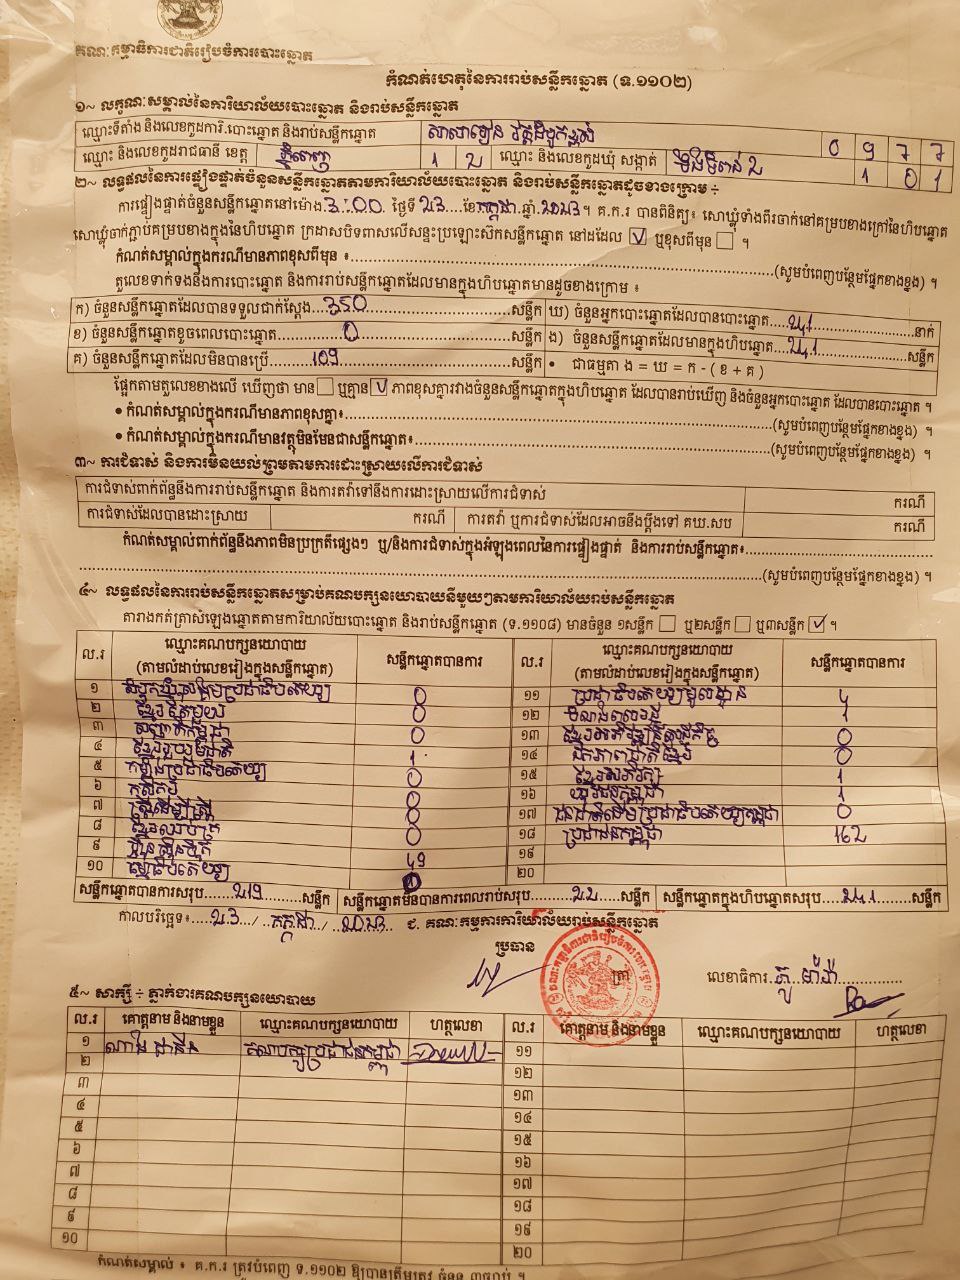 គណៈកម្មាធិការជាតិរៀបចំការបោះឆ្នោត
កំណត់ហេតុនៃការរាប់សន្លឹកឆ្នោត (ទ.១១០២)
១~ លក្ខណៈសម្គាល់នៃការិយាល័យបោះឆ្នោត និងរាប់សន្លឹកឆ្នោត
ឈ្មោះទីតាំង និងលេខកូដការិ.បោះឆ្នោត និងរាប់សន្លឹកឆ្នោត 0 9 7 7
ឈ្មោះ និងលេខកូដរាជធានី ខេត្ត ភ្នំពេញ 1 2 ឈ្មោះ និងលេខកូដឃុំ សង្កាត់ 1 0 1
២~ លទ្ធផលនៃការផ្ទៀងផ្ទាត់ចំនួនសន្លឹកឆ្នោតតាមការិយាល័យបោះឆ្នោត និងរាប់សន្លឹកឆ្នោតដូចខាងក្រោម ÷
ការផ្ទៀងផ្ទាត់ចំនួនសន្លឹកឆ្នោតនៅម៉ោង 3:00 ថ្ងៃទី 23 ខែ កក្កដា ឆ្នាំ 2023។ គ.ក.រ បានពិនិត្យ៖ សោឃ្លុំទាំងពីរចាក់នៅគម្របខាងក្រៅនៃហិបឆ្នោត
សោឃ្លុំចាក់ភ្ជាប់គម្របខាងក្នុងនៃហិបឆ្នោត ក្រដាសបិទពាសលើសន្ទះប្រឡោះសិកសន្លឹកឆ្នោត នៅដដែល ☑ ឬខុសពីមុន ☐ ។
កំណត់សម្គាល់ក្នុងករណីមានភាពខុសពីមុន ៖ (សូមបំពេញបន្ថែមផ្នែកខាងខ្នង) ។
តួលេខទាក់ទងនឹងការបោះឆ្នោត និងការរាប់សន្លឹកឆ្នោតដែលមានក្នុងហិបឆ្នោតមានដូចខាងក្រោម ៖
ក) ចំនួនសន្លឹកឆ្នោតដែលបានទទួលជាក់ស្តែង 350 សន្លឹក ឃ) ចំនួនអ្នកបោះឆ្នោតដែលបានបោះឆ្នោត 241 នាក់
ខ) ចំនួនសន្លឹកឆ្នោតខូចពេលបោះឆ្នោត 0 សន្លឹក ង) ចំនួនសន្លឹកឆ្នោតដែលមានក្នុងហិបឆ្នោត 241 សន្លឹក
គ) ចំនួនសន្លឹកឆ្នោតដែលមិនបានប្រើ 109 សន្លឹក • ជាធម្មតា ង = ឃ = ក - ( ខ + គ )
ផ្អែកតាមតួលេខខាងលើ ឃើញថា មាន ☐ ឬគ្មាន ☑ ភាពខុសគ្នារវាងចំនួនសន្លឹកឆ្នោតក្នុងហិបឆ្នោត ដែលបានរាប់ឃើញ និងចំនួនអ្នកបោះឆ្នោត ដែលបានបោះឆ្នោត ។
• កំណត់សម្គាល់ក្នុងករណីមានភាពខុសគ្នា៖ (សូមបំពេញបន្ថែមផ្នែកខាងខ្នង) ។
• កំណត់សម្គាល់ក្នុងករណីមានវត្ថុមិនមែនជាសន្លឹកឆ្នោត៖ (សូមបំពេញបន្ថែមផ្នែកខាងខ្នង) ។
៣~ ការជំទាស់ និងការមិនយល់ព្រមតាមការដោះស្រាយលើការជំទាស់
ការជំទាស់ពាក់ព័ន្ធនឹងការរាប់សន្លឹកឆ្នោត និងការតវ៉ាទៅនឹងការដោះស្រាយលើការជំទាស់ ករណី
ការជំទាស់ដែលបានដោះស្រាយ ករណី ការតវ៉ា ឬការជំទាស់ដែលអាចនឹងប្តឹងទៅ គឃ.សប ករណី
កំណត់សម្គាល់ពាក់ព័ន្ធនឹងភាពមិនប្រក្រតីផ្សេងៗ ឬ/និងការជំទាស់ក្នុងអំឡុងពេលនៃការផ្ទៀងផ្ទាត់ និងការរាប់សន្លឹកឆ្នោត៖
(សូមបំពេញបន្ថែមផ្នែកខាងខ្នង) ។
៤~ លទ្ធផលនៃការរាប់សន្លឹកឆ្នោតសម្រាប់គណបក្សនយោបាយនីមួយៗតាមការិយាល័យរាប់សន្លឹកឆ្នោត
តារាងកត់ត្រាសំឡេងឆ្នោតតាមការិយាល័យបោះឆ្នោត និងរាប់សន្លឹកឆ្នោត (ទ.១១០៨) មានចំនួន ១សន្លឹក ☐ ឬ២សន្លឹក ☐ ឬ៣សន្លឹក ☑ ។
ល.រ ឈ្មោះគណបក្សនយោបាយ (តាមលំដាប់លេខរៀងក្នុងសន្លឹកឆ្នោត) សន្លឹកឆ្នោតបានការ ល.រ ឈ្មោះគណបក្សនយោបាយ (តាមលំដាប់លេខរៀងក្នុងសន្លឹកឆ្នោត) សន្លឹកឆ្នោតបានការ
១ 0 ១១ ប្រជាធិបតេយ្យមូលដ្ឋាន 4
២ ខ្មែរតែមួយ 0 ១២ 1
៣ 0 ១៣ ខ្មែរអភិវឌ្ឍន៍សេដ្ឋកិច្ច 0
៤ ខ្មែររួបរួមជាតិ 1 ១៤ ឯកភាពជាតិខ្មែរ 0
៥ កម្លាំងប្រជាធិបតេយ្យ 0 ១៥ ខ្មែរអភិរក្ស 1
៦ កសិករ 0 ១៦ យុវជនកម្ពុជា 1
៧ ស្ត្រីដើម្បីស្ត្រី 0 ១៧ ជនជាតិដើមប្រជាធិបតេយ្យកម្ពុជា 0
៨ 0 ១៨ ប្រជាជនកម្ពុជា 162
៩ ហ្វ៊ុនស៊ិនប៉ិច 49 ១៩
១០ ធម្មាធិបតេយ្យ 0 ២០
សន្លឹកឆ្នោតបានការសរុប 219 សន្លឹក សន្លឹកឆ្នោតមិនបានការពេលរាប់សរុប 22 សន្លឹក សន្លឹកឆ្នោតក្នុងហិបឆ្នោតសរុប 241 សន្លឹក
កាលបរិច្ឆេទ៖ 23 / កក្កដា / 2023 ជ. គណៈកម្មការការិយាល័យរាប់សន្លឹកឆ្នោត
ប្រធាន ត្រា លេខាធិការ
៥~ សាក្សី ÷ ភ្នាក់ងារគណបក្សនយោបាយ
ល.រ គោត្តនាម និងនាមខ្លួន ឈ្មោះគណបក្សនយោបាយ ហត្ថលេខា ល.រ គោត្តនាម និងនាមខ្លួន ឈ្មោះគណបក្សនយោបាយ ហត្ថលេខា
១ គណបក្សប្រជាជនកម្ពុជា ១១
២ ១២
៣ ១៣
៤ ១៤
៥ ១៥
៦ ១៦
៧ ១៧
៨ ១៨
៩ ១៩
១០ ២០
កំណត់សម្គាល់ ៖ គ.ក.រ ត្រូវបំពេញ ទ.១១០២ ឱ្យបានត្រឹមត្រូវ ចំនួន ៣ច្បាប់ ។